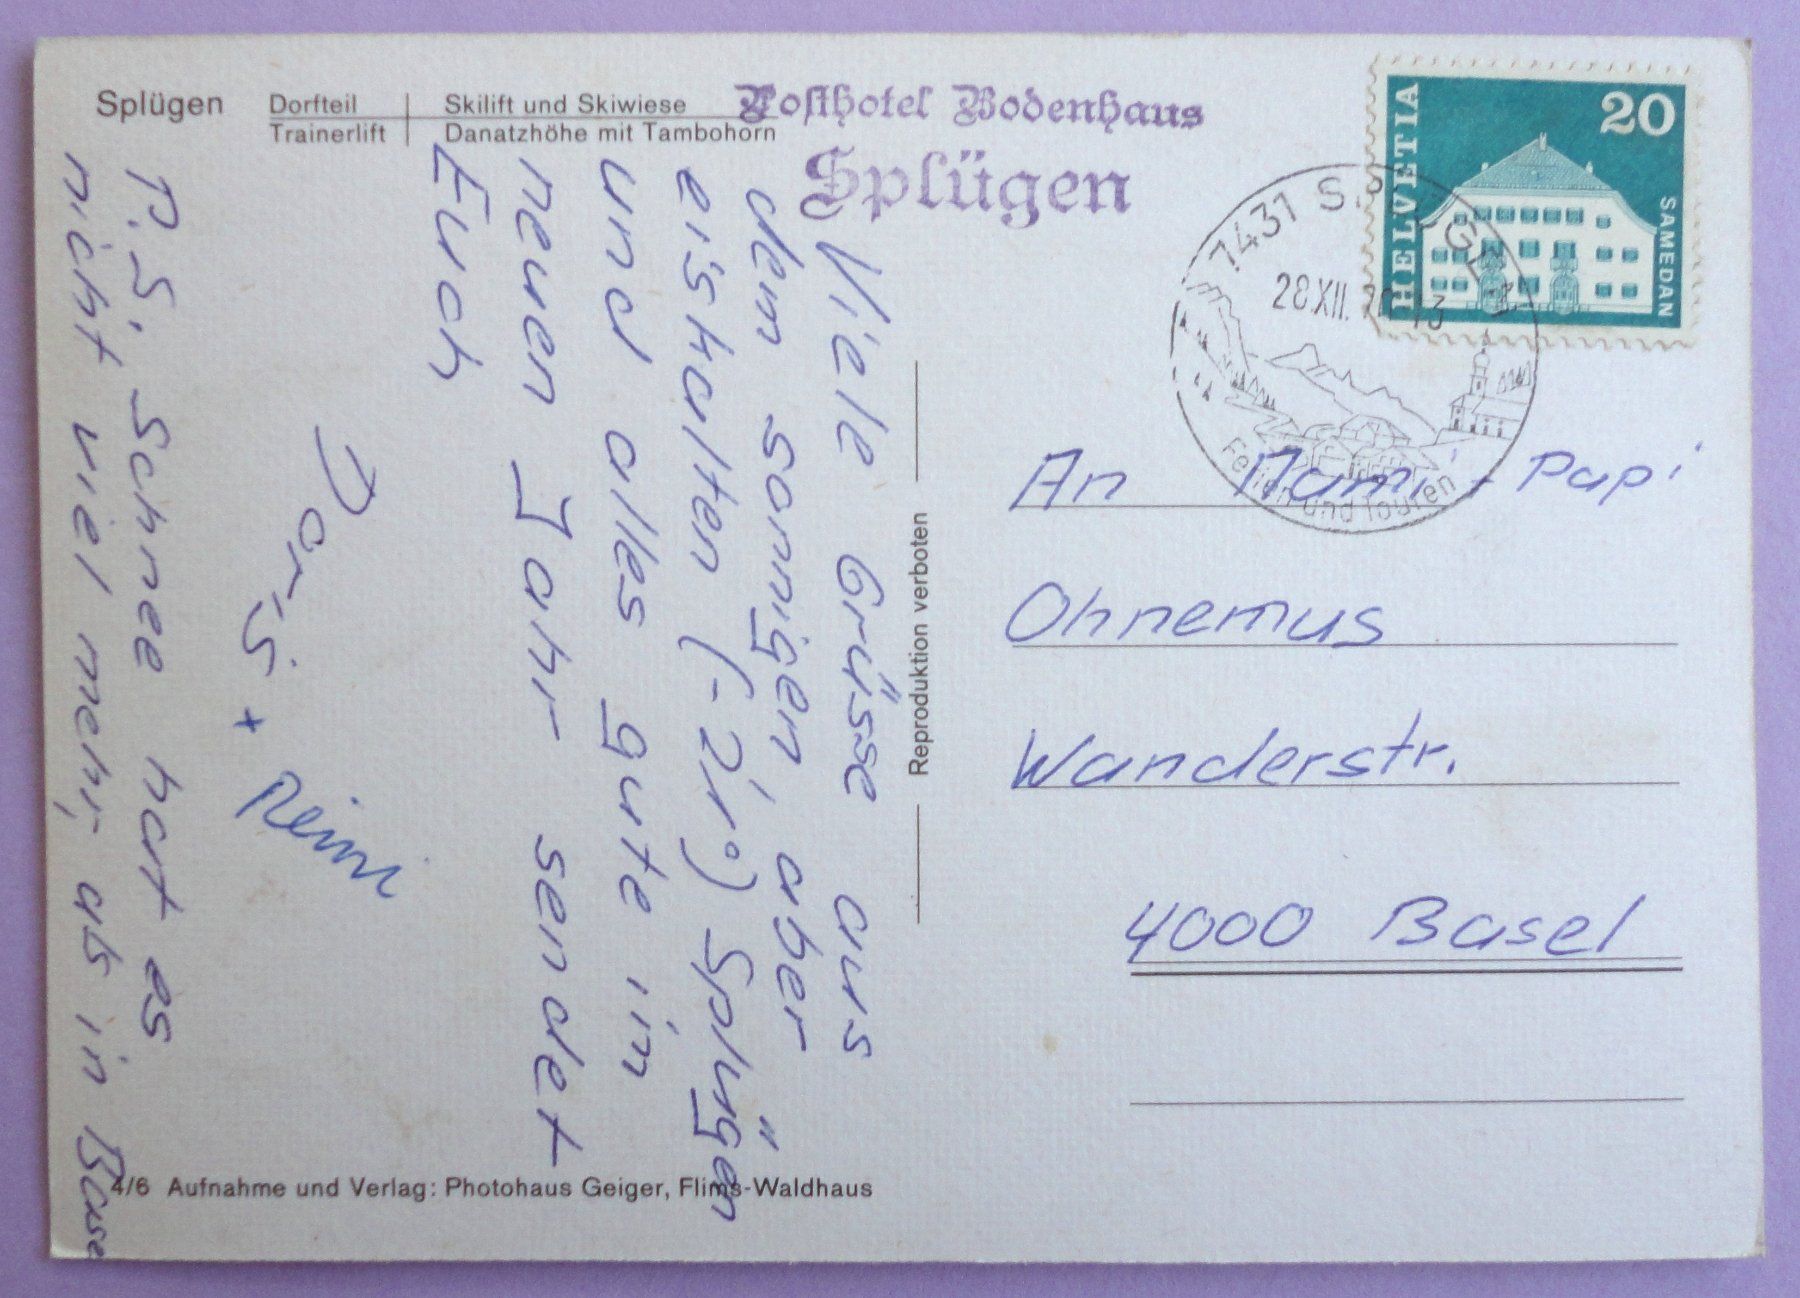 Splügen
Dorfteil
Trainerlift
Skilift und Skiwiese
Danatzhöhe mit Tambohorn
Posthotel Bodenhaus
Splügen
HELVETIA
20
SAMEDAN
7431 SPLÜGEN
28.XII.
13
Ferien und Touren
Viele Grüsse aus
dem sonnigen, aber
eiskalten (-21°) Splügen
und alles gute im
neuen Jahr sendet
Euch
Doris +
Reini
P.S. Schnee hat es
nicht viel mehr, als in Basel
Reproduktion verboten
An Mami - Papi
Ohnemus
Wanderstr.
4000 Basel
4/6 Aufnahme und Verlag: Photohaus Geiger, Flims-Waldhaus